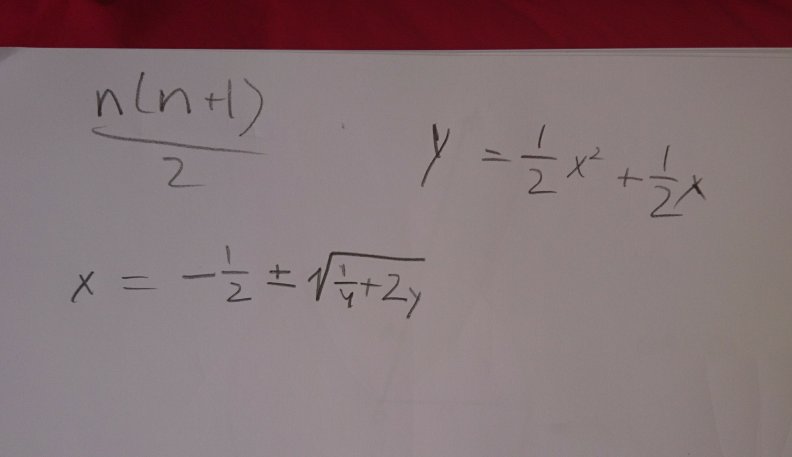 n(n+1)/2
y = 1/2 x² + 1/2 x
x = -1/2 ± √(1/4+2y)